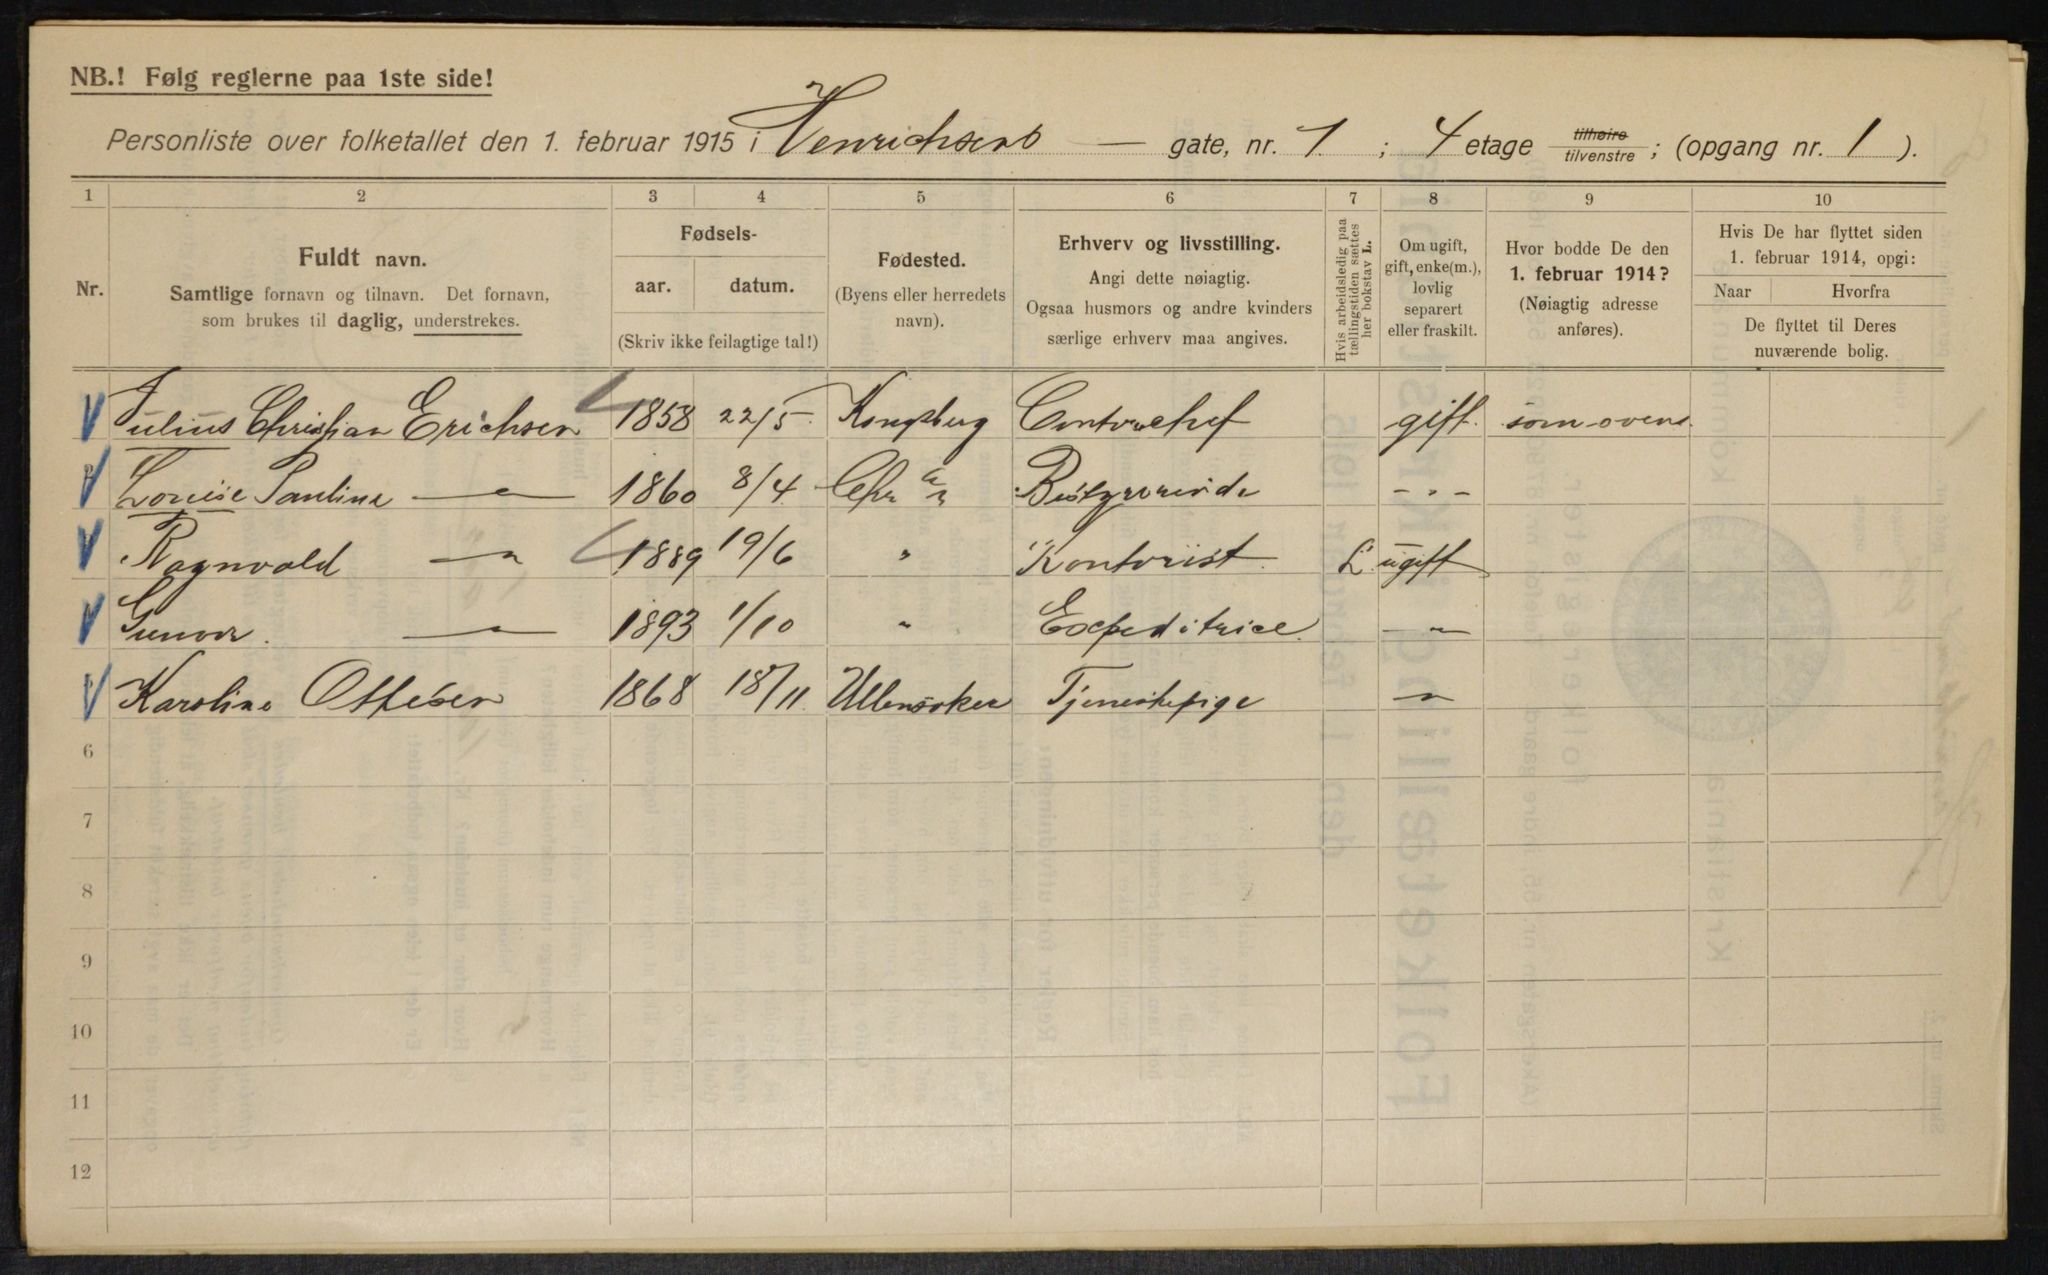 NB.! Følg reglerne paa 1ste side!
Personliste over folketallet den 1. februar 1915 i Henrichsens — gate, nr. 1. ; 4 etage tilhøire tilvenstre ; (opgang nr. 1 ).
1 2 3 4 5 6 7 8 9 10
Nr.
Fuldt navn.
Samtlige fornavn og tilnavn. Det fornavn,
som brukes til daglig, understrekes.
Fødsels-
aar. datum.
(Skriv ikke feilagtige tal!)
Fødested.
(Byens eller herredets
navn).
Erhverv og livsstilling.
Angi dette nøiagtig.
Ogsaa husmors og andre kvinders
særlige erhverv maa angives.
Hvis arbeidsledig paa
tællingstiden sættes
her bokstav L.
Om ugift,
gift, enke(m.),
lovlig
separert
eller fraskilt.
Hvor bodde De den
1. februar 1914?
(Nøiagtig adresse
anføres).
Hvis De har flyttet siden
1. februar 1914, opgi:
Naar Hvorfra
De flyttet til Deres
nuværende bolig.
Julius Christian Erichsen 1858 22/5 Kongsberg Contorchef gift som ovens
Louise Pauline —"— 1860 8/4 Chr a Bestyrerinde - " -
Ragnvald —"— 1889 19/6 " Kontorist L ugift
Gunvor. —"— 1893 1/10 " Expeditrice —"—
Karoline Ottesen 1868 18/11 Ullensaker Tjenestepige —"—
6
7
8
9
10
11
12